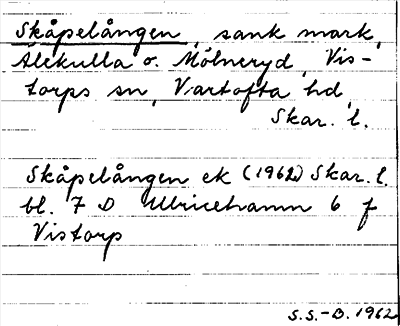 Skåpelången, sank mark,
Älekulla o. Mölneryd, Vis-
torps sn, Vartofta hd,
Skar. l.
Skåpelången ek (1962) Skar. l.
bl. 7 D Ulricehamn 6 f
Vistorp
S.S.-D. 1962